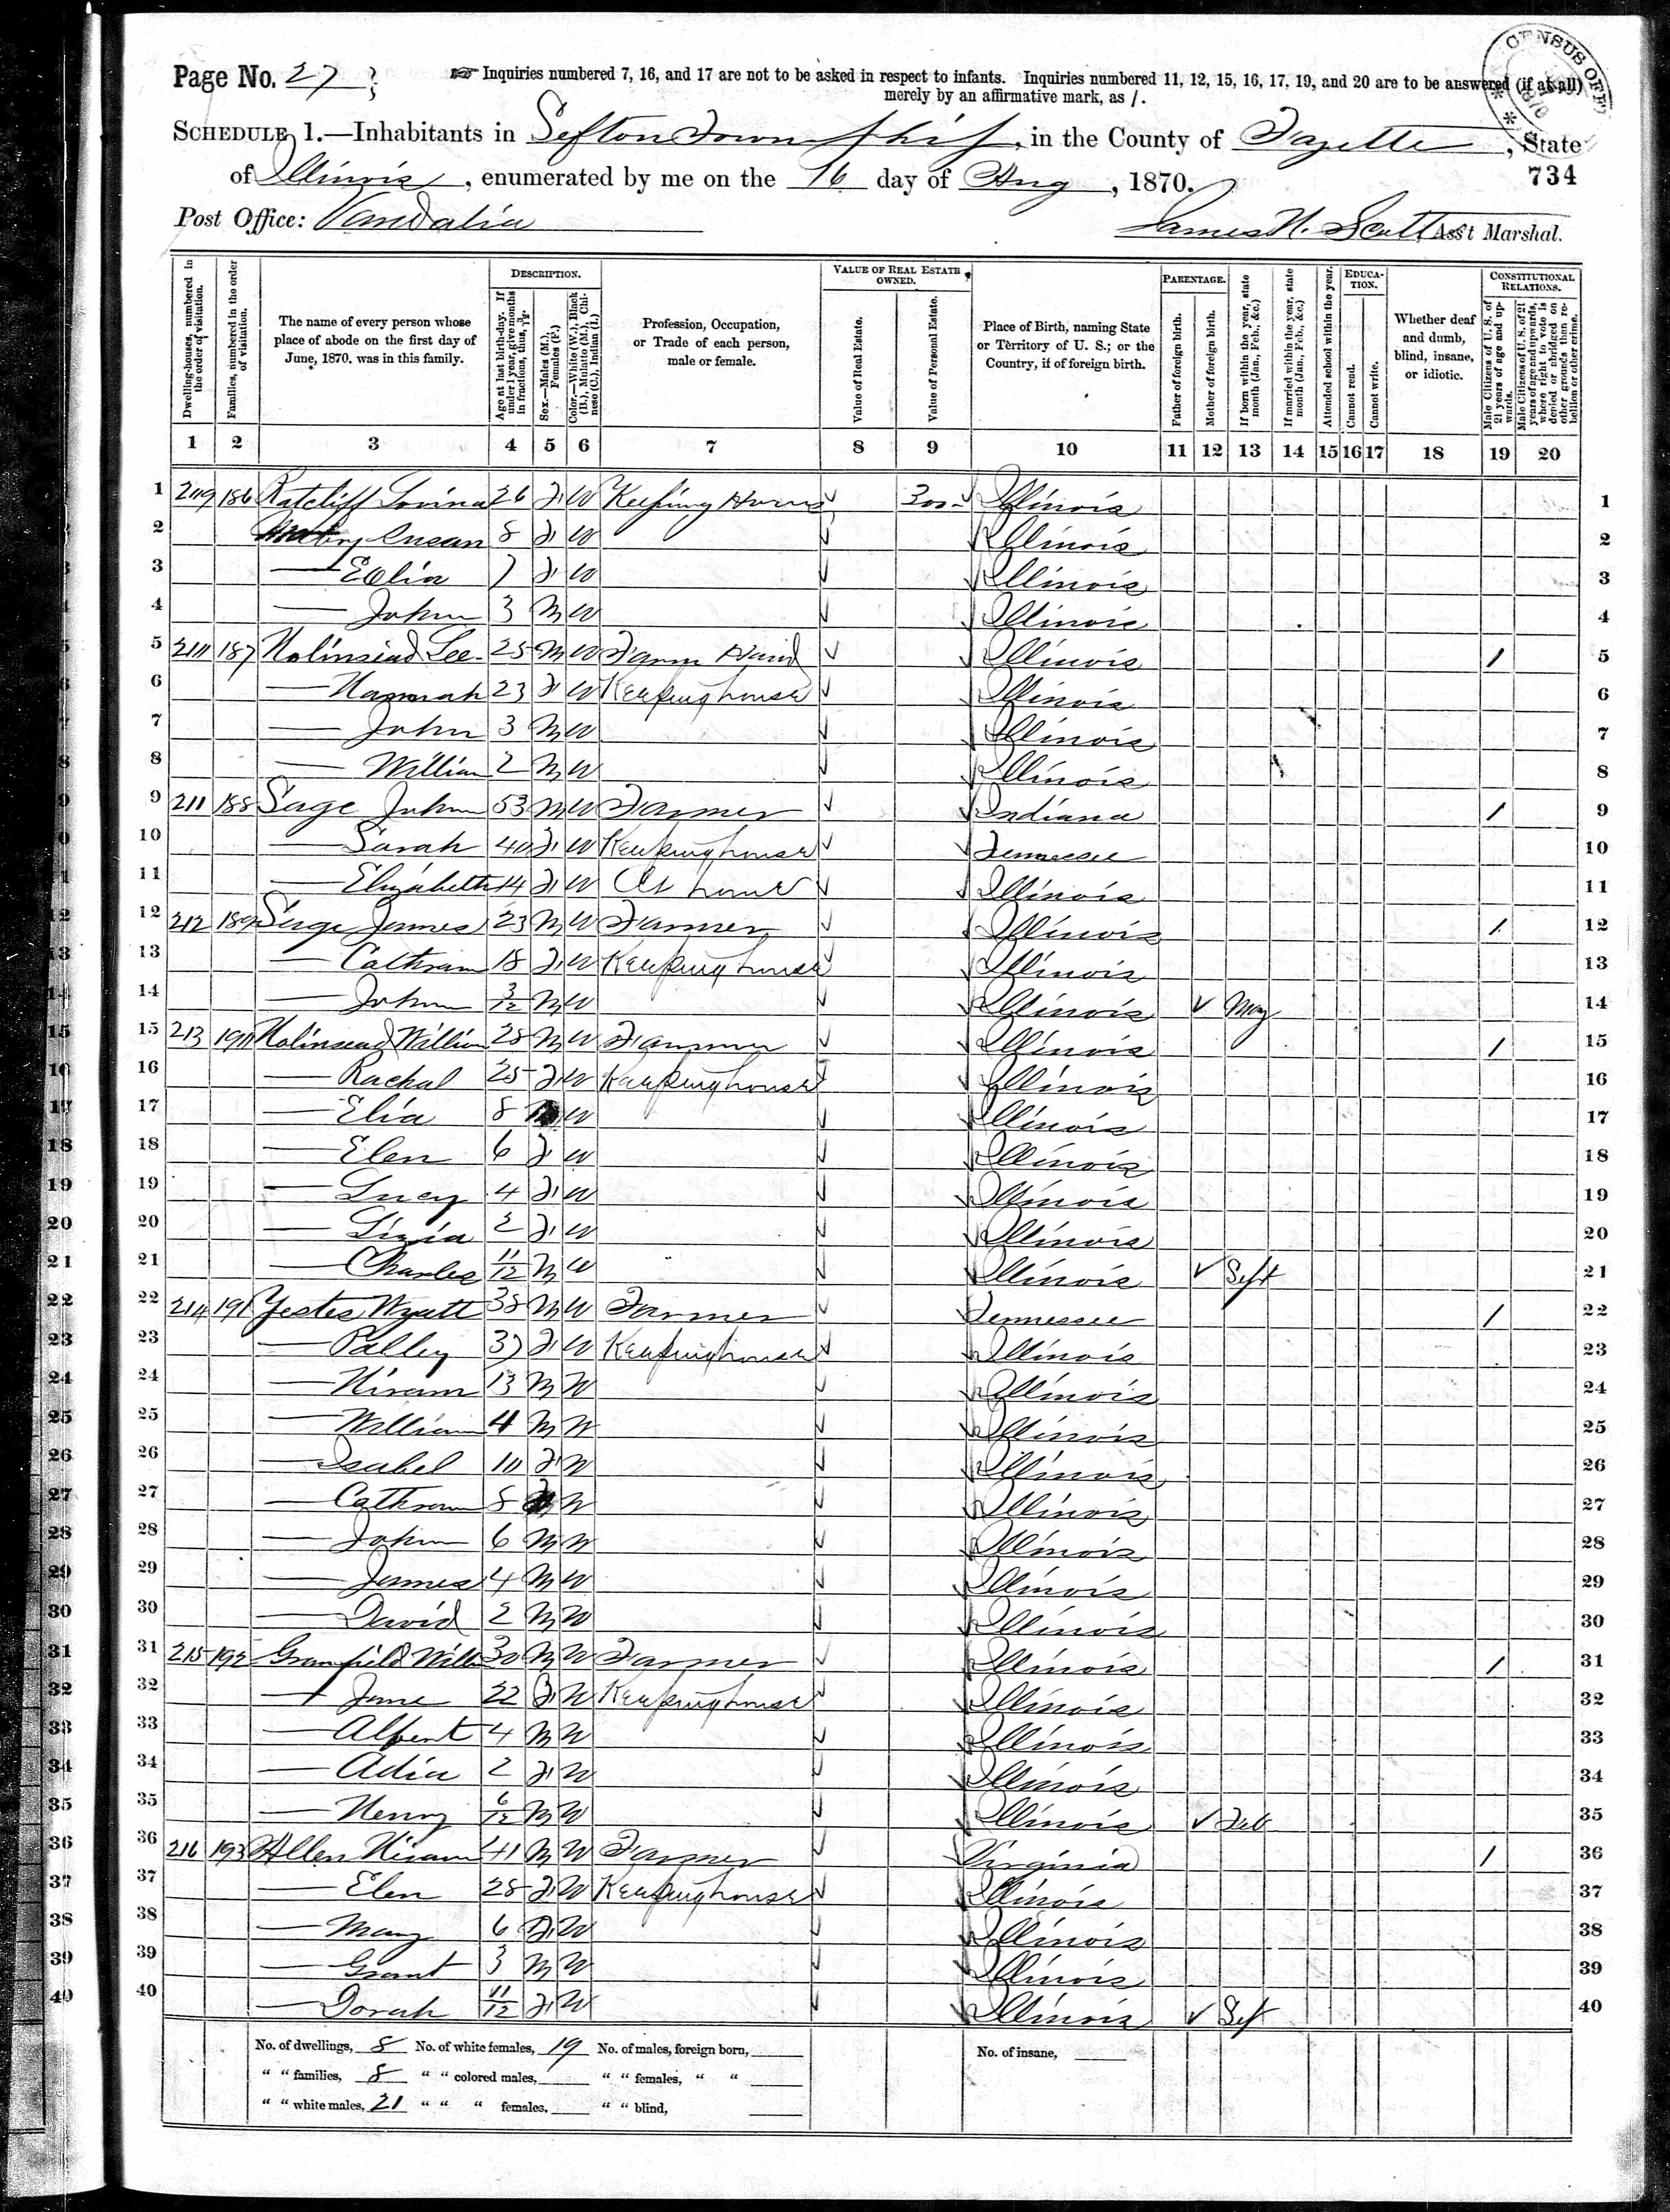 Page No. 27
Inquiries numbered 7, 16, and 17 are not to be asked in respect to infants. Inquiries numbered 11, 12, 15, 16, 17, 19, and 20 are to be answered (if at all)
merely by an affirmative mark, as /.
CENSUS OFF
1870
SCHEDULE 1.—Inhabitants in Sefton Township, in the County of Fayette, State
of Illinois, enumerated by me on the 16 day of Aug, 1870.
734
Post Office: Vandalia
James N. Scott, Ass't Marshal.
Dwelling-houses, numbered in the order of visitation.
Families, numbered in the order of visitation.
The name of every person whose place of abode on the first day of June, 1870, was in this family.
DESCRIPTION.
Age at last birth-day. If under 1 year, give months in fractions, thus, 3/12.
Sex.—Males (M.), Females (F.)
Color.—White (W.), Black (B.), Mulatto (M.), Chinese (C.), Indian (I.)
Profession, Occupation, or Trade of each person, male or female.
VALUE OF REAL ESTATE OWNED.
Value of Real Estate.
Value of Personal Estate.
Place of Birth, naming State or Territory of U. S.; or the Country, if of foreign birth.
PARENTAGE.
Father of foreign birth.
Mother of foreign birth.
If born within the year, state month (Jan., Feb., &c.)
If married within the year, state month (Jan., Feb., &c.)
Attended school within the year.
EDUCATION.
Cannot read.
Cannot write.
Whether deaf and dumb, blind, insane, or idiotic.
CONSTITUTIONAL RELATIONS.
Male Citizens of U. S. of 21 years of age and upwards.
Male Citizens of U. S. of 21 years of age and upwards, where right to vote is denied or abridged on other grounds than rebellion or other crime.
1 2 3 4 5 6 7 8 9 10 11 12 13 14 15 16 17 18 19 20
1 209 186 Ratcliff Lovina 26 F W Keeping House 300 Illinois 1
2 Susan 8 F W Illinois 2
3 — 7 F W Illinois 3
4 — John 3 M W Illinois 4
5 210 187 Holinsead Lee 25 M W Farm Hand Illinois / 5
6 — Hannah 23 F W Keeping house Illinois 6
7 — John 3 M W Illinois 7
8 — William 2 M W Illinois 8
9 211 188 Sage John 53 M W Farmer Indiana / 9
10 — Sarah 40 F W Keeping house Tennessee 10
11 — Elizabeth 14 F W At home Illinois 11
12 212 189 Sage James 23 M W Farmer Illinois / 12
13 — Cathram 18 F W Keeping house Illinois 13
14 — John 3/12 M W Illinois May 14
15 213 190 Holinsead William 28 M W Farmer Illinois / 15
16 — Rachal 25 F W Keeping house Illinois 16
17 — Elia 8 W Illinois 17
18 — Elen 6 F W Illinois 18
19 — Lucy 4 F W Illinois 19
20 — Lizia 2 F W Illinois 20
21 — Charles 11/12 M W Illinois Sept 21
22 214 191 Yestes Wyatt 38 M W Farmer Tennessee / 22
23 — Polley 37 F W Keeping house Illinois 23
24 — Hiram 13 M W Illinois 24
25 — William 4 M W Illinois 25
26 — Isabel 10 F W Illinois 26
27 — Cathram 8 W Illinois 27
28 — John 6 M W Illinois 28
29 — James 4 M W Illinois 29
30 — David 2 M W Illinois 30
31 215 192 Granfield Willm 30 M W Farmer Illinois / 31
32 — Jane 22 F W Keeping house Illinois 32
33 — Alpert 4 M W Illinois 33
34 — Adia 2 F W Illinois 34
35 — Henry 6/12 M W Illinois Feb 35
36 216 193 Allen Hiram 41 M W Farmer Virginia / 36
37 — Elen 28 F W Keeping house Illinois 37
38 — Mary 6 F W Illinois 38
39 — Grant 3 M W Illinois 39
40 — Dorah 11/12 F W Illinois Sept 40
No. of dwellings, 8 No. of white females, 19 No. of males, foreign born, No. of insane,
" " families, 8 " " colored males, " " females, " "
" " white males, 21 " " " females, " " blind,